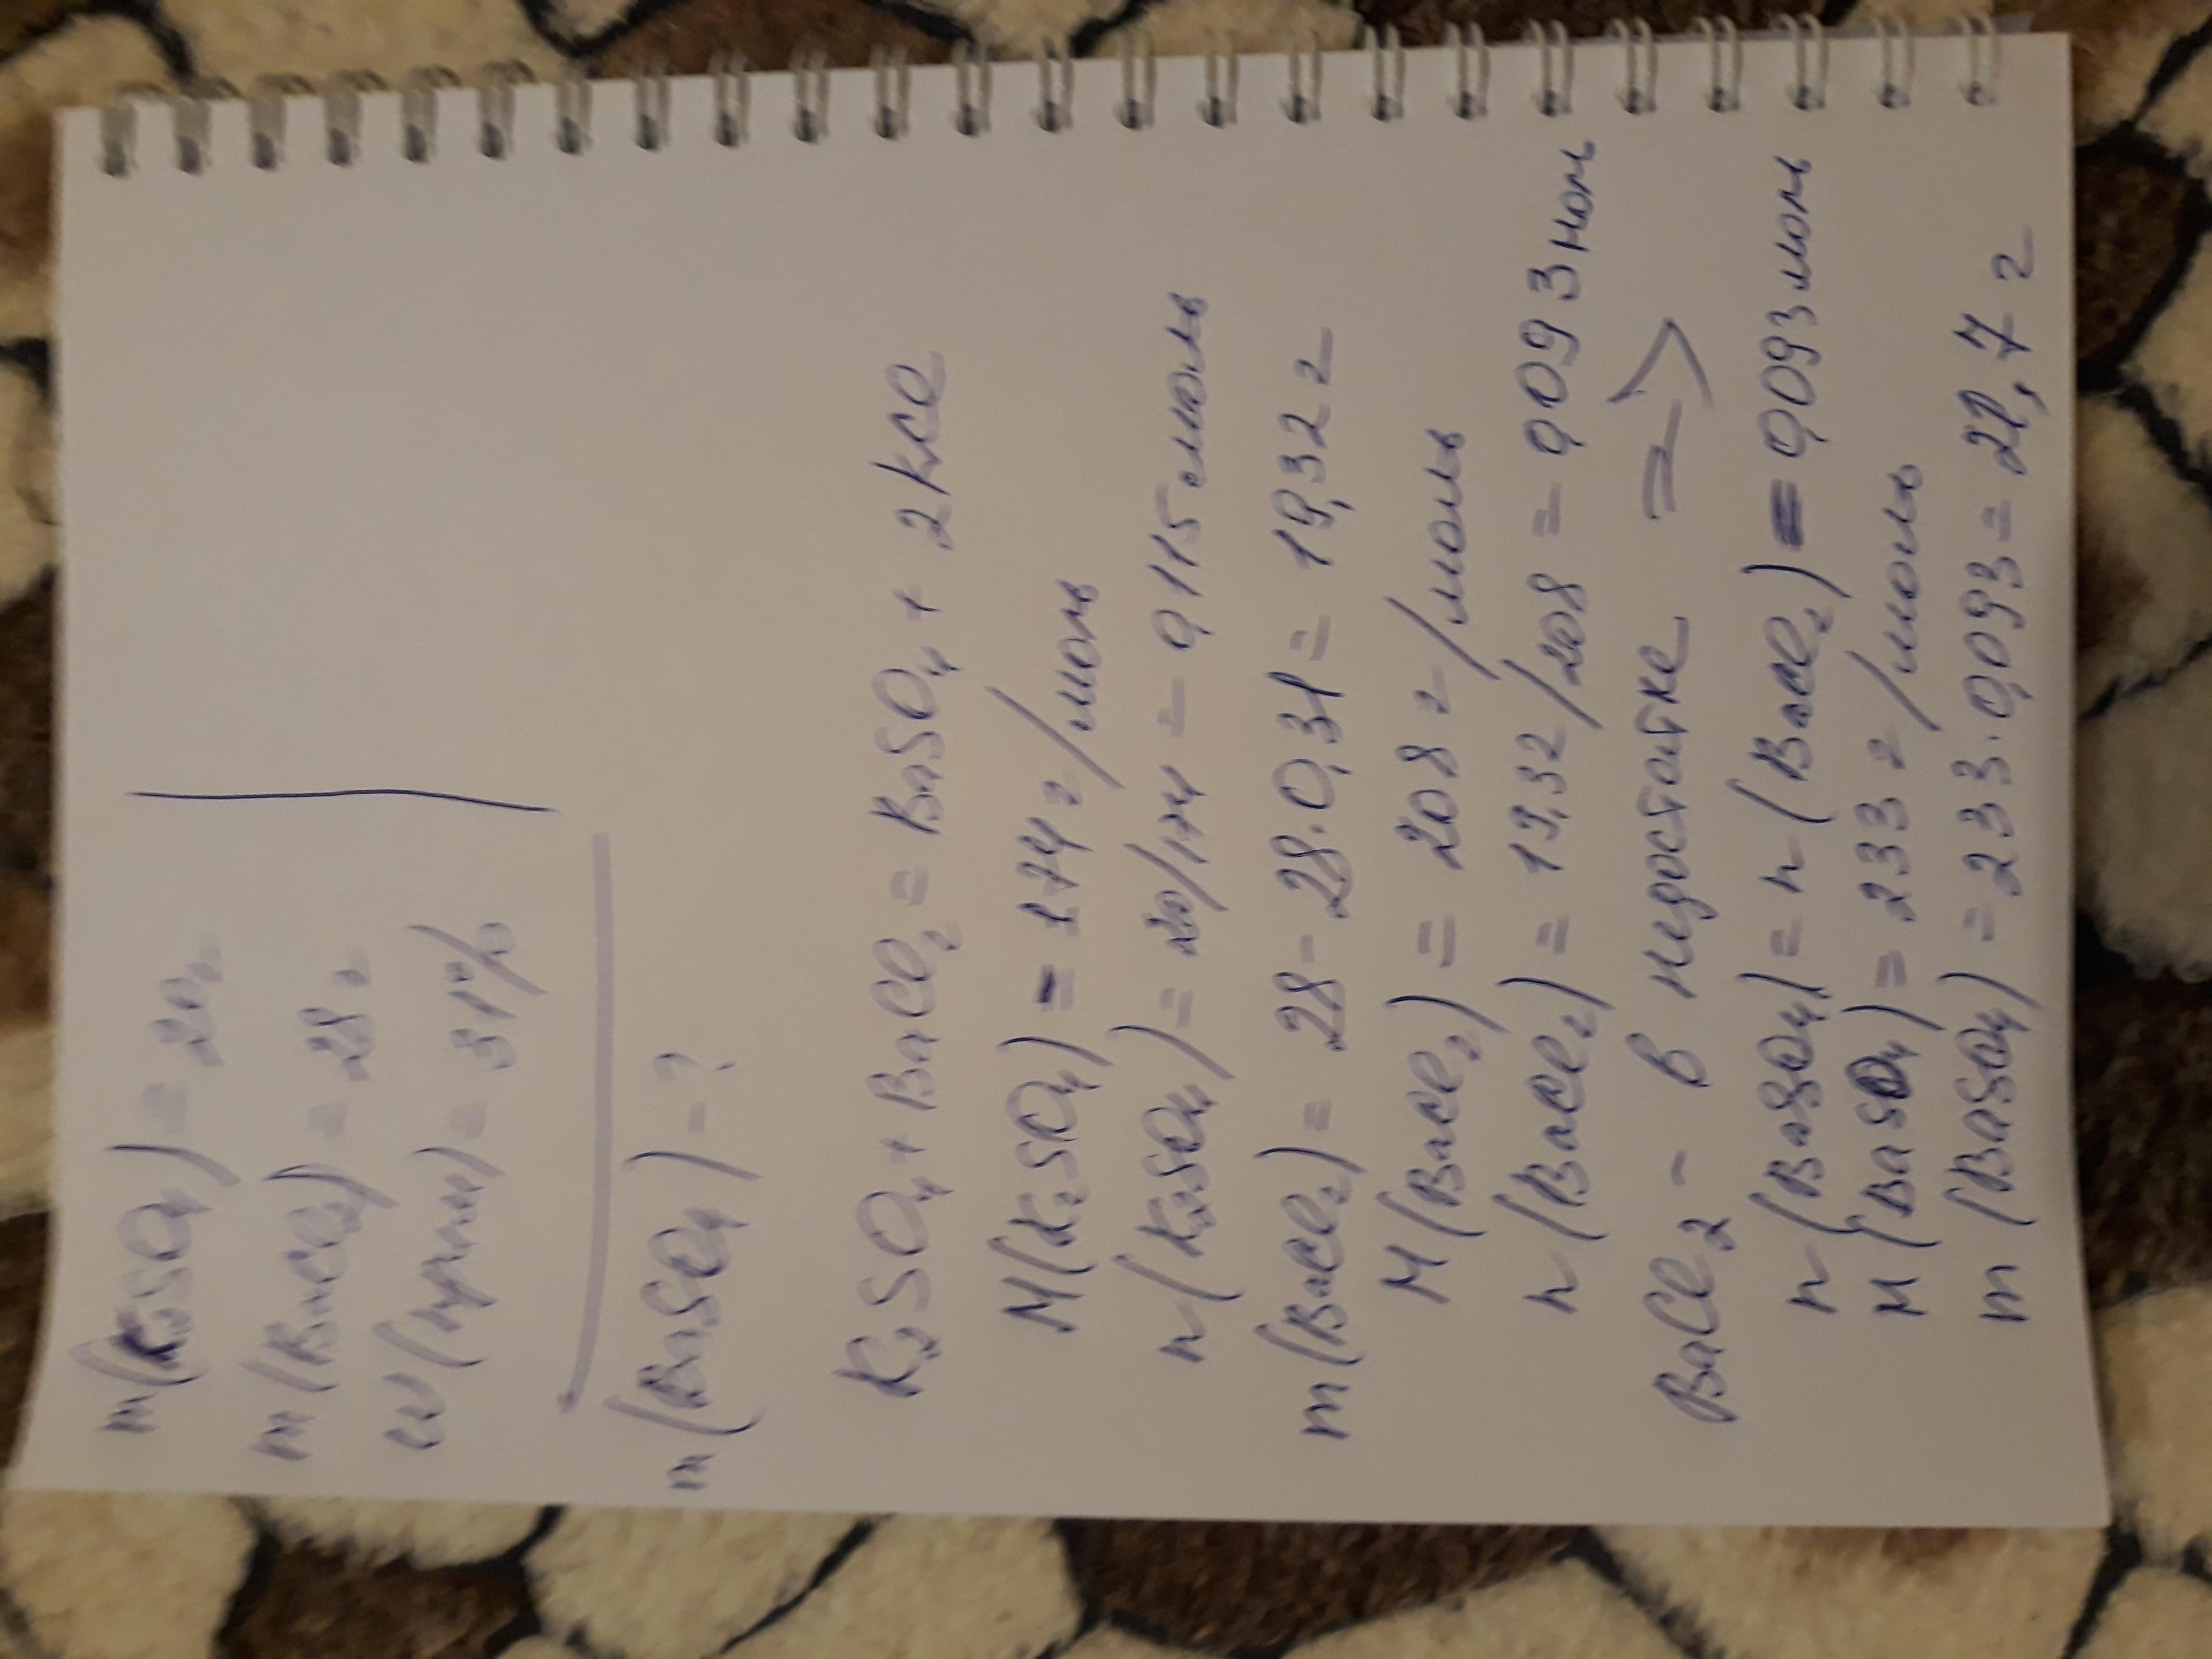 m(K₂SO₄) = 20г
m(BaCl₂) = 28г
ω(прим) = 31%
m(BaSO₄) - ?
K₂SO₄ + BaCl₂ = BaSO₄ + 2KCl
M(K₂SO₄) = 174 г/моль
n(K₂SO₄) = 20/174 = 0,115 моль
m(BaCl₂) = 28 - 28·0,31 = 19,32 г
M(BaCl₂) = 208 г/моль
n(BaCl₂) = 19,32/208 = 0,093 мол
BaCl₂ - в недостатке =>
n(BaSO₄) = n(BaCl₂) = 0,093 моль
M(BaSO₄) = 233 г/моль
m(BaSO₄) = 233·0,093 = 21,7 г